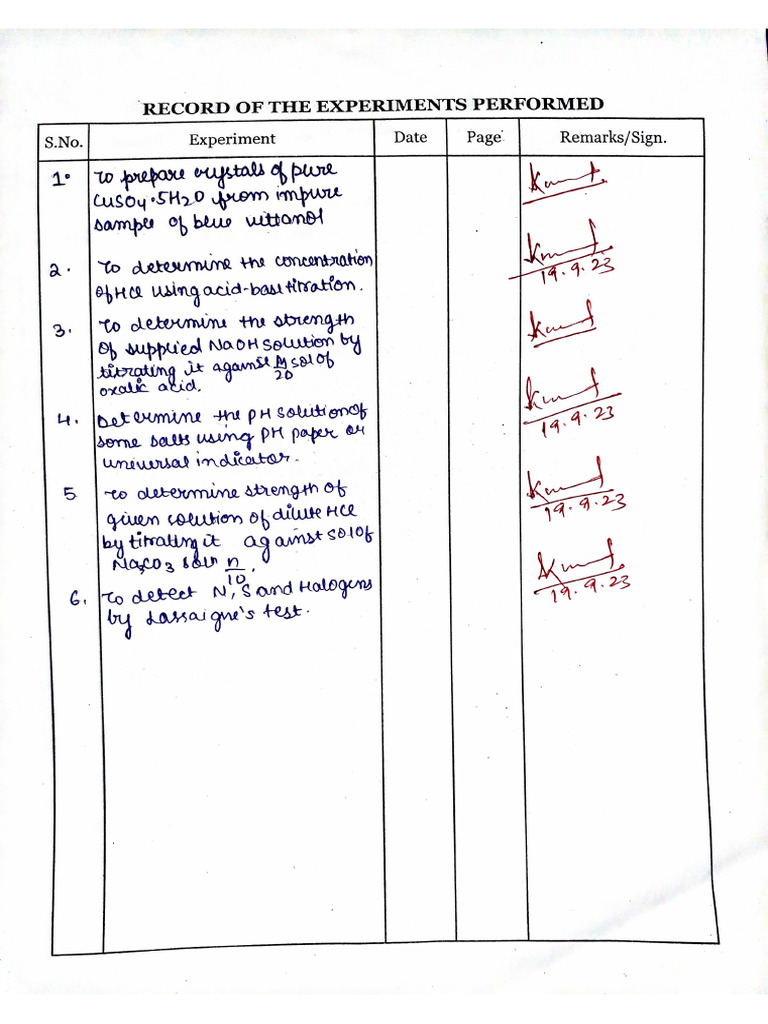 RECORD OF THE EXPERIMENTS PERFORMED
S.No. Experiment Date Page Remarks/Sign.
1. To prepare crystals of pure
CuSO4.5H2O from impure
sample of blue vittonol
2. To determine the concentration
of HCl using acid-base titration.
19.9.23
3. To determine the strength
of supplied NaOH solution by
titrating it against M/20 sol of
oxalic acid.
4. Determine the PH solution of
some salts using PH paper or
universal indicator.
19.9.23
5 To determine strength of
given solution of dilute HCl
by titrating it against sol of
Na2CO3 n/10.
19.9.23
6. To detect N, S and Halogens
by Lassaigne's test.
19.9.23